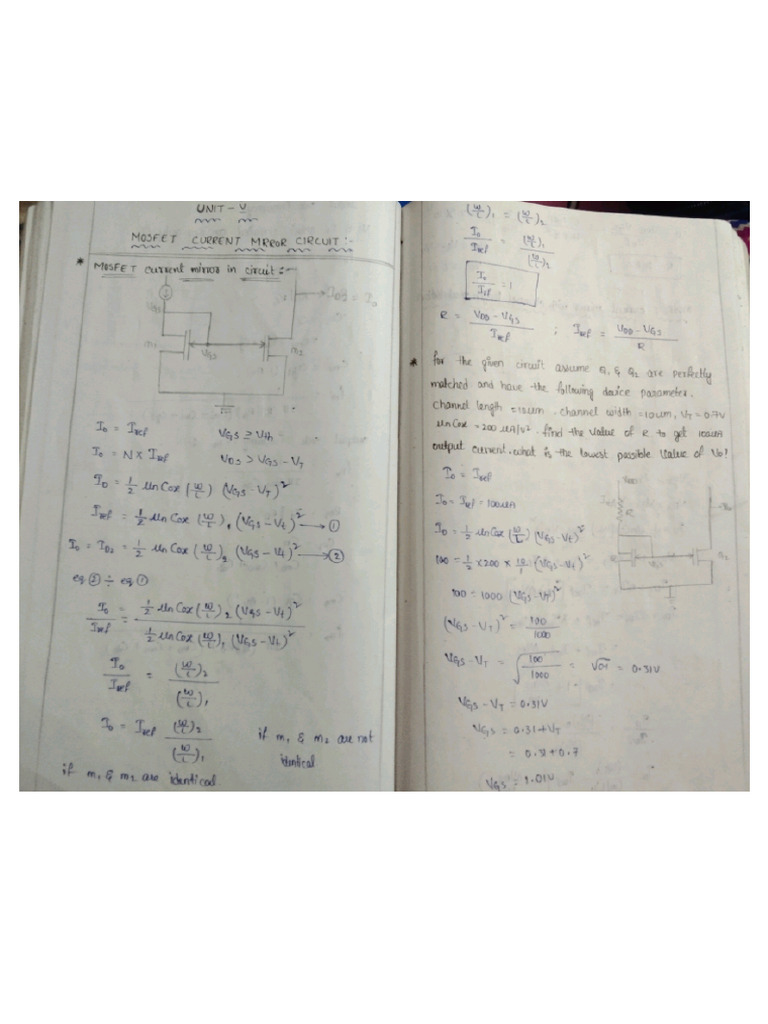 UNIT - V
MOSFET CURRENT MRROR CIRCUIT :-
* MOSFET current mirror in circuit :-
ID2 = Io
VGS
m1
VGS
m2
Io = Iref VGS ≥ Vth
Io = N × Iref VDS > VGS - VT
ID = 1/2 un Cox (W/L) (VGS - VT)²
Iref = 1/2 un Cox (W/L)1 (VGS - Vt)² → ①
Io = ID2 = 1/2 un Cox (W/L)2 (VGS - Vt)² → ②
eq ② ÷ eq ①
Io/Iref = 1/2 un Cox (W/L)2 (VGS - Vt)² / 1/2 un Cox (W/L)1 (VGS - Vt)²
Io/Iref = (W/L)2 / (W/L)1
Io = Iref (W/L)2 / (W/L)1 if m1 & m2 are not identical
if m1 & m2 are identical.
(W/L)1 = (W/L)2
Io/Iref = (W/L)1 / (W/L)2
Io/Iref = 1
R = VDD - VGS / Iref ; Iref = VDD - VGS / R
* for the given circuit assume Q1 & Q2 are perfectly
matched and have the following device parameter.
channel length = 10um, channel width = 10um, VT = 0.7V
un Cox = 200 uA/V². find the value of R to get 100uA
output current. what is the lowest possible value of Vo?
Io = Iref
VDD
Io = Iref = 100uA
R
ID = 1/2 un Cox (W/L) (VGS - Vt)²
VGS
Q2
100 = 1/2 × 200 × 10/1 (VGS - Vt)²
100 = 1000 (VGS - VT)²
(VGS - VT)² = 100/1000
VGS - VT = √100/1000 = √0.1 = 0.31V
VGS - VT = 0.31V
VGS = 0.31 + VT
= 0.31 + 0.7
VGS = 1.01V